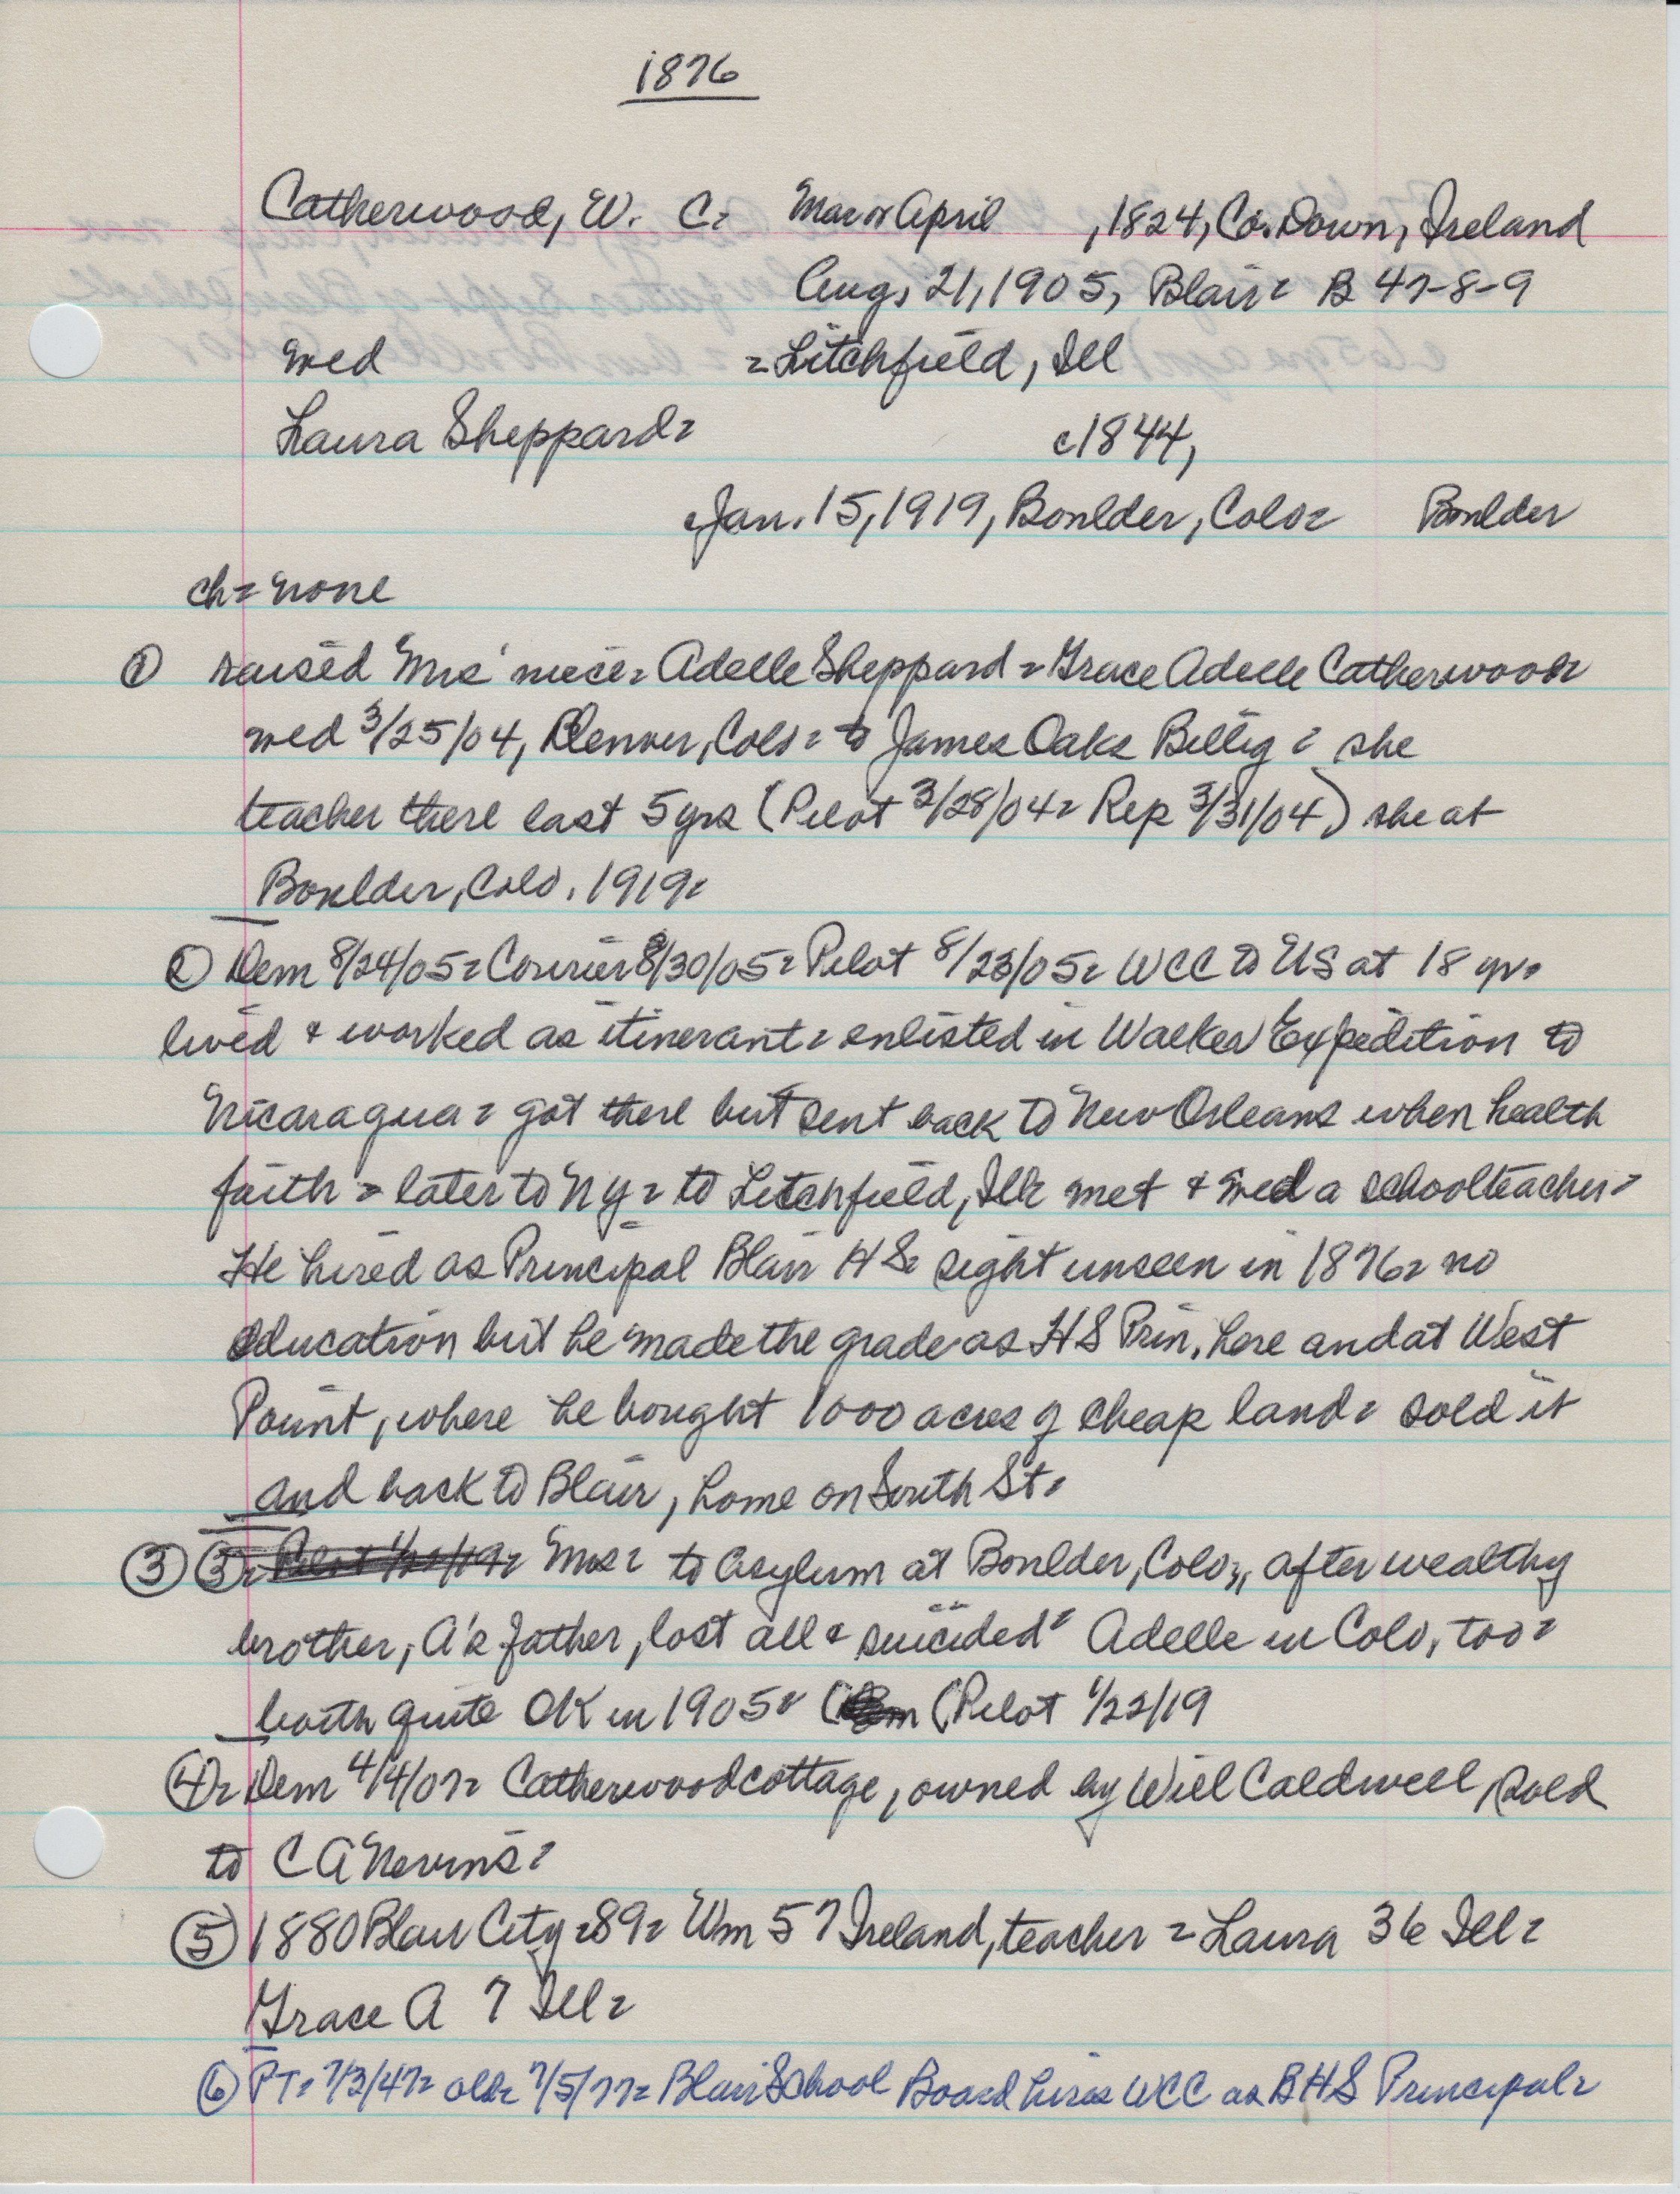 1876
Catherwood, W. C= Mar or April , 1824, Co. Down, Ireland
Aug, 21, 1905, Blair= B 47-8-9
med = Litchfield, Ill
Laura Sheppard= c1844,
Jan. 15, 1919, Boulder, Colo= Boulder
ch= none
① raised Mrs' niece= Adelle Sheppard = Grace Adelle Catherwood=
med 3/25/04, Denver, Colo= to James Oaks Billig = she
teacher there last 5 yrs (Pilot 3/28/04= Rep 3/31/04) she at
Boulder, Colo. 1919=
② Dem 8/24/05= Courier 8/30/05= Pilot 8/23/05= WCC to US at 18 yr=
lived & worked as itinerant= enlisted in Walker Expedition to
Nicaragua= got there but sent back to New Orleans when health
faith = later to NY= to Litchfield, Ill= met & med a schoolteacher=
He hired as Principal Blair HS= sight unseen in 1876= no
education but he made the grade as HS Prin, here and at West
Point, where he bought 1000 acres of cheap land= sold it
and back to Blair, home on South St=
③ ③= Mrs= to asylum at Boulder, Colo=, after wealthy
brother, A's father, lost all & suicided= Adelle in Colo, too=
both quite OK in 1905= (Pilot 1/22/19
④= Dem 4/4/07= Catherwood cottage, owned by Will Caldwell, sold
to C A Nevins=
⑤ 1880 Blair City=89= Wm 57 Ireland, teacher = Laura 36 Ill=
Grace A 7 Ill=
⑥ PT= 7/3/47= old= 7/5/77= Blair School Board hires WCC as BHS Principal=